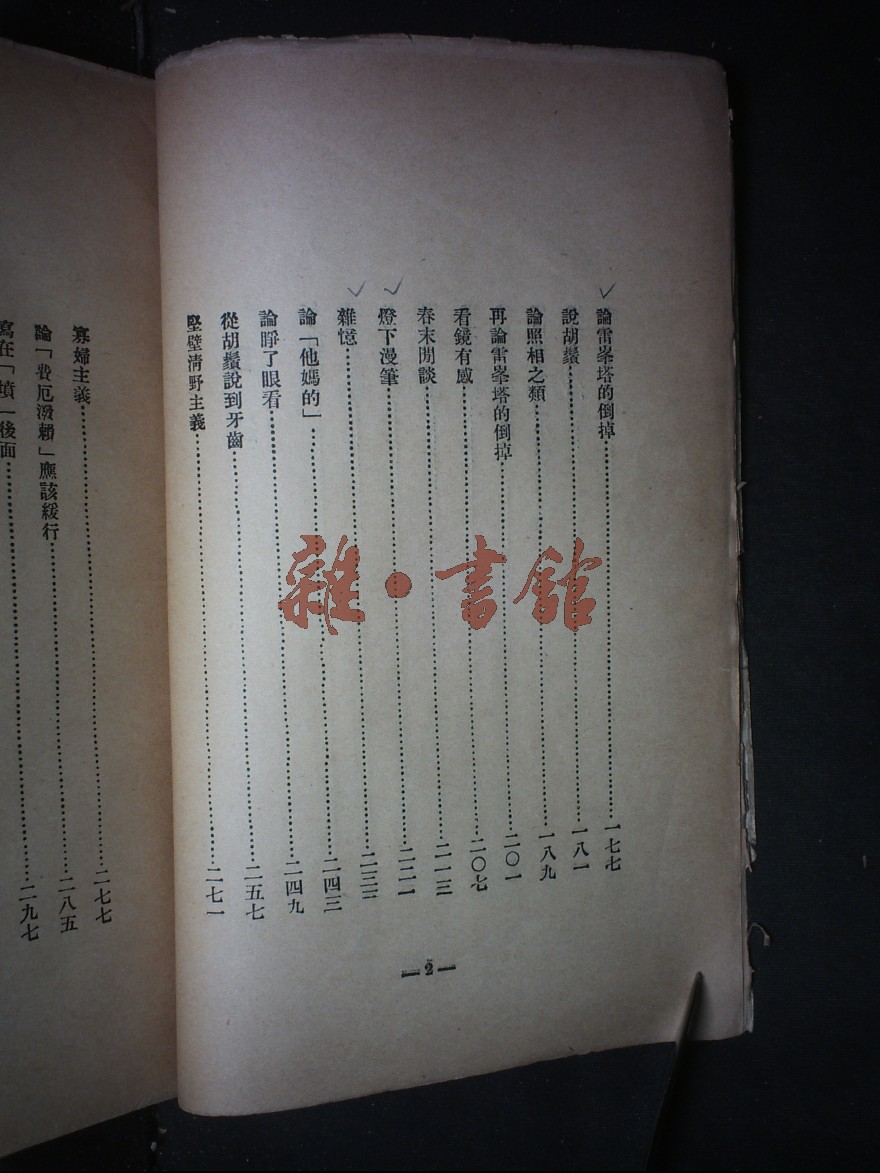 論雷峯塔的倒掉……一七七
說胡鬚……一八一
論照相之類……一八九
再論雷峯塔的倒掉……二〇一
看鏡有感……二〇七
春末閒談……二一三
燈下漫筆……二二一
雜憶……二三三
論「他媽的」……二四三
論睜了眼看……二四九
從胡鬚說到牙齒……二五七
堅壁清野主義……二七一
—2—
寡婦主義……二七七
論「費厄潑賴」應該緩行……二八五
寫在「墳」後面……二九七
雜·書館